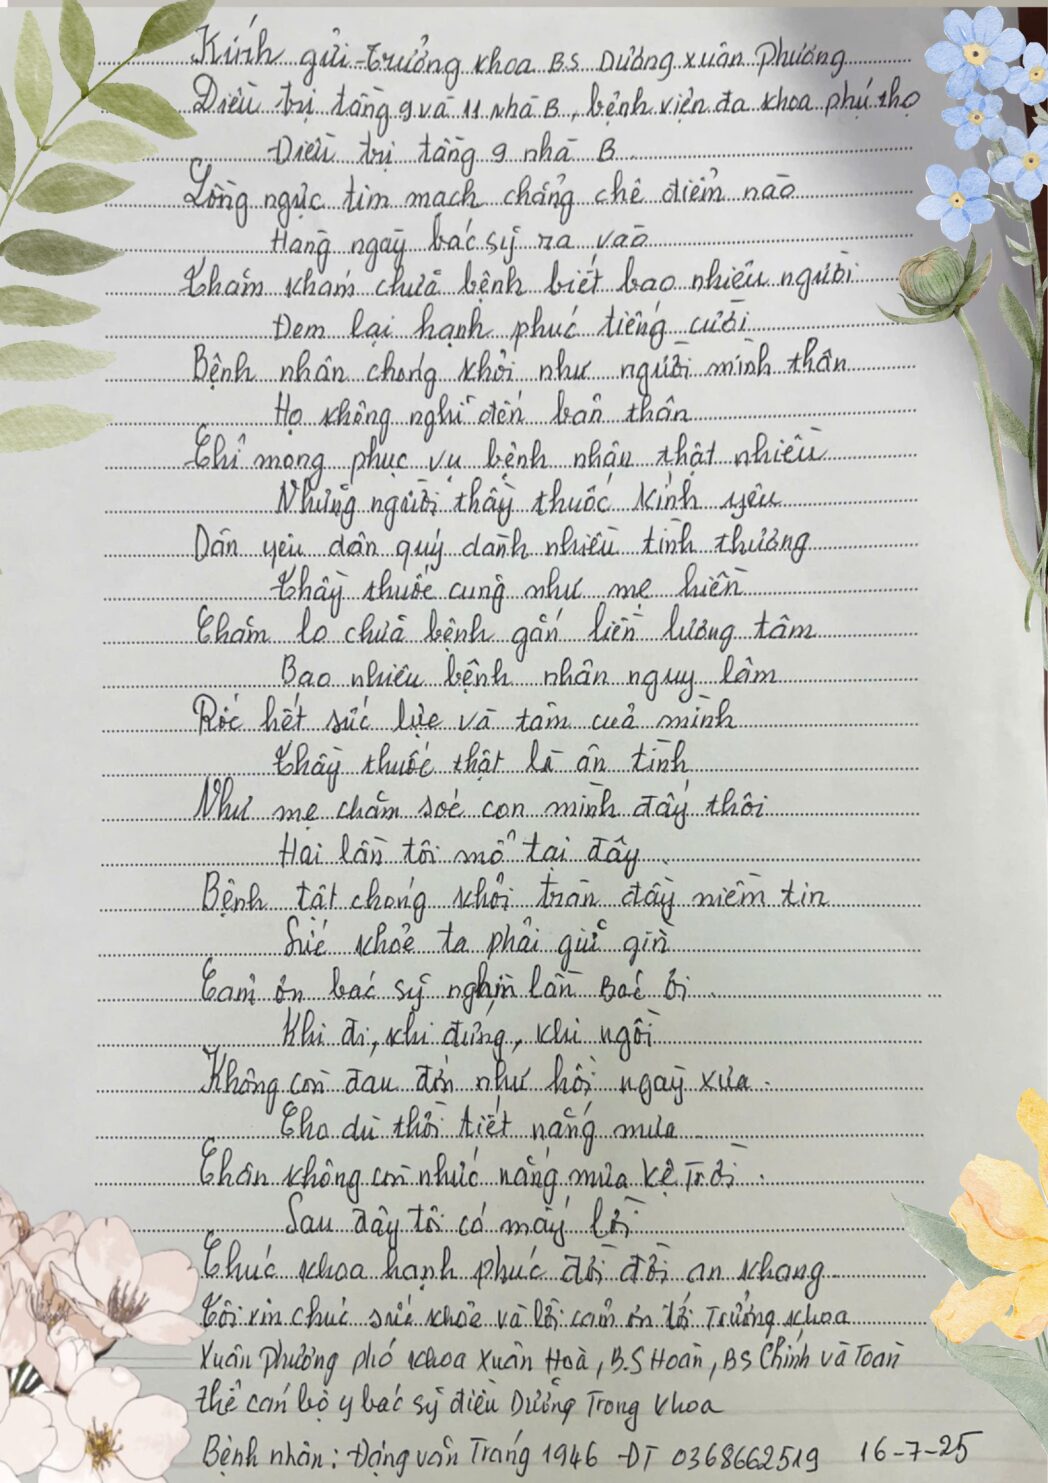 Kính gửi - Trưởng khoa BS Dương Xuân Phương
Điều trị tầng 9 và 11 nhà B, bệnh viện đa khoa phú thọ
Điều trị tầng 9 nhà B
Lồng ngực tim mạch chẳng chê điểm nào
Hàng ngày bác sỹ ra vào
Thăm khám chữa bệnh biết bao nhiêu người
Đem lại hạnh phúc tiếng cười
Bệnh nhân chóng khỏi như người mình thân
Họ không nghĩ đến bản thân
Chỉ mong phục vụ bệnh nhân thật nhiều
Những người thầy thuốc kính yêu
Dân yêu dân quý dành nhiều tình thương
Thầy thuốc cũng như mẹ hiền
Chăm lo chữa bệnh gắn liền lương tâm
Bao nhiêu bệnh nhân nguy lâm
Róc hết sức lực và tâm của mình
Thầy thuốc thật là ân tình
Như mẹ chăm sóc con mình đấy thôi
Hai lần tôi mổ tại đây
Bệnh tật chóng khỏi tràn đầy niềm tin
Sức khỏe ta phải giữ gìn
Cảm ơn bác sỹ nghìn lần Bác ơi
Khi đi, khi đứng, khi ngồi
Không còn đau đớn như hồi ngày xưa.
Cho dù thời tiết nắng mưa
Chân không còn nhức nắng mưa kệ Trời.
Sau đây tôi có mấy lời
Chúc khoa hạnh phúc đời đời an khang
Tôi xin chúc sức khỏe và lời cảm ơn tới Trưởng khoa
Xuân Phương phó khoa Xuân Hoà, B.S Hoàn, BS Chính và Toàn
thể cán bộ y bác sỹ điều Dưỡng Trong khoa
Bệnh nhân: Đặng văn Tráng 1946 - ĐT 0368662519 16-7-25